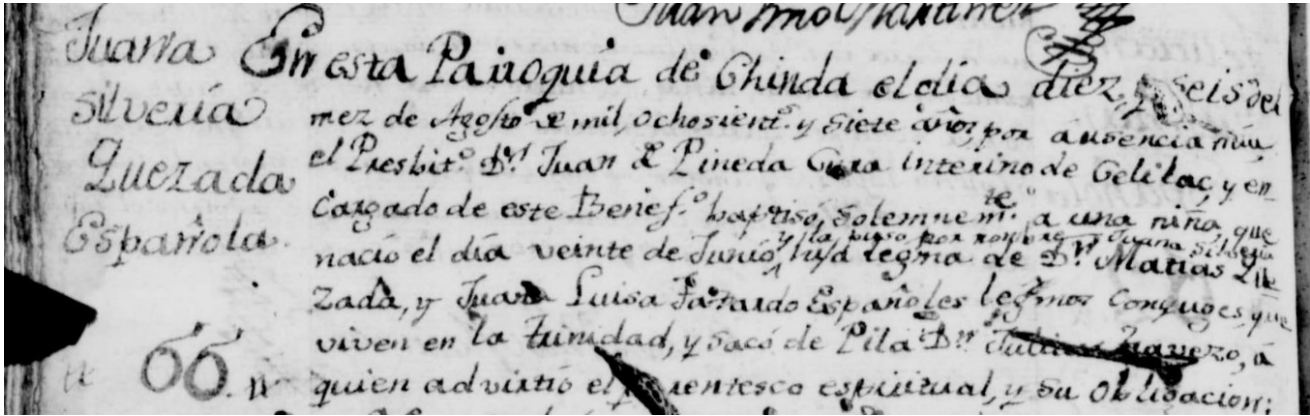 Juan
Juana
Silveria
Quezada
Española
66
En esta Parroquia de Chinda el día diez, y seis del
mez de Agosto de mil, ochosient.s y siete años, por ausencia mia,
el Presbit.o D.n Juan de Pineda Cura interino de Celilac, y en
Cargado de este Benef.o baptisó, solemnem.te a una niña, que
nació el día veinte de Junio, y la puso por nombre Juana Silveria
hija legma de D.n Matias Que
zada, y Juana Luisa Faxardo Españoles legmos Conyuges, que
viven en la trinidad, y sacó de Pila D.n á
quien advirtió el parentesco espiritual, y su obligacion: